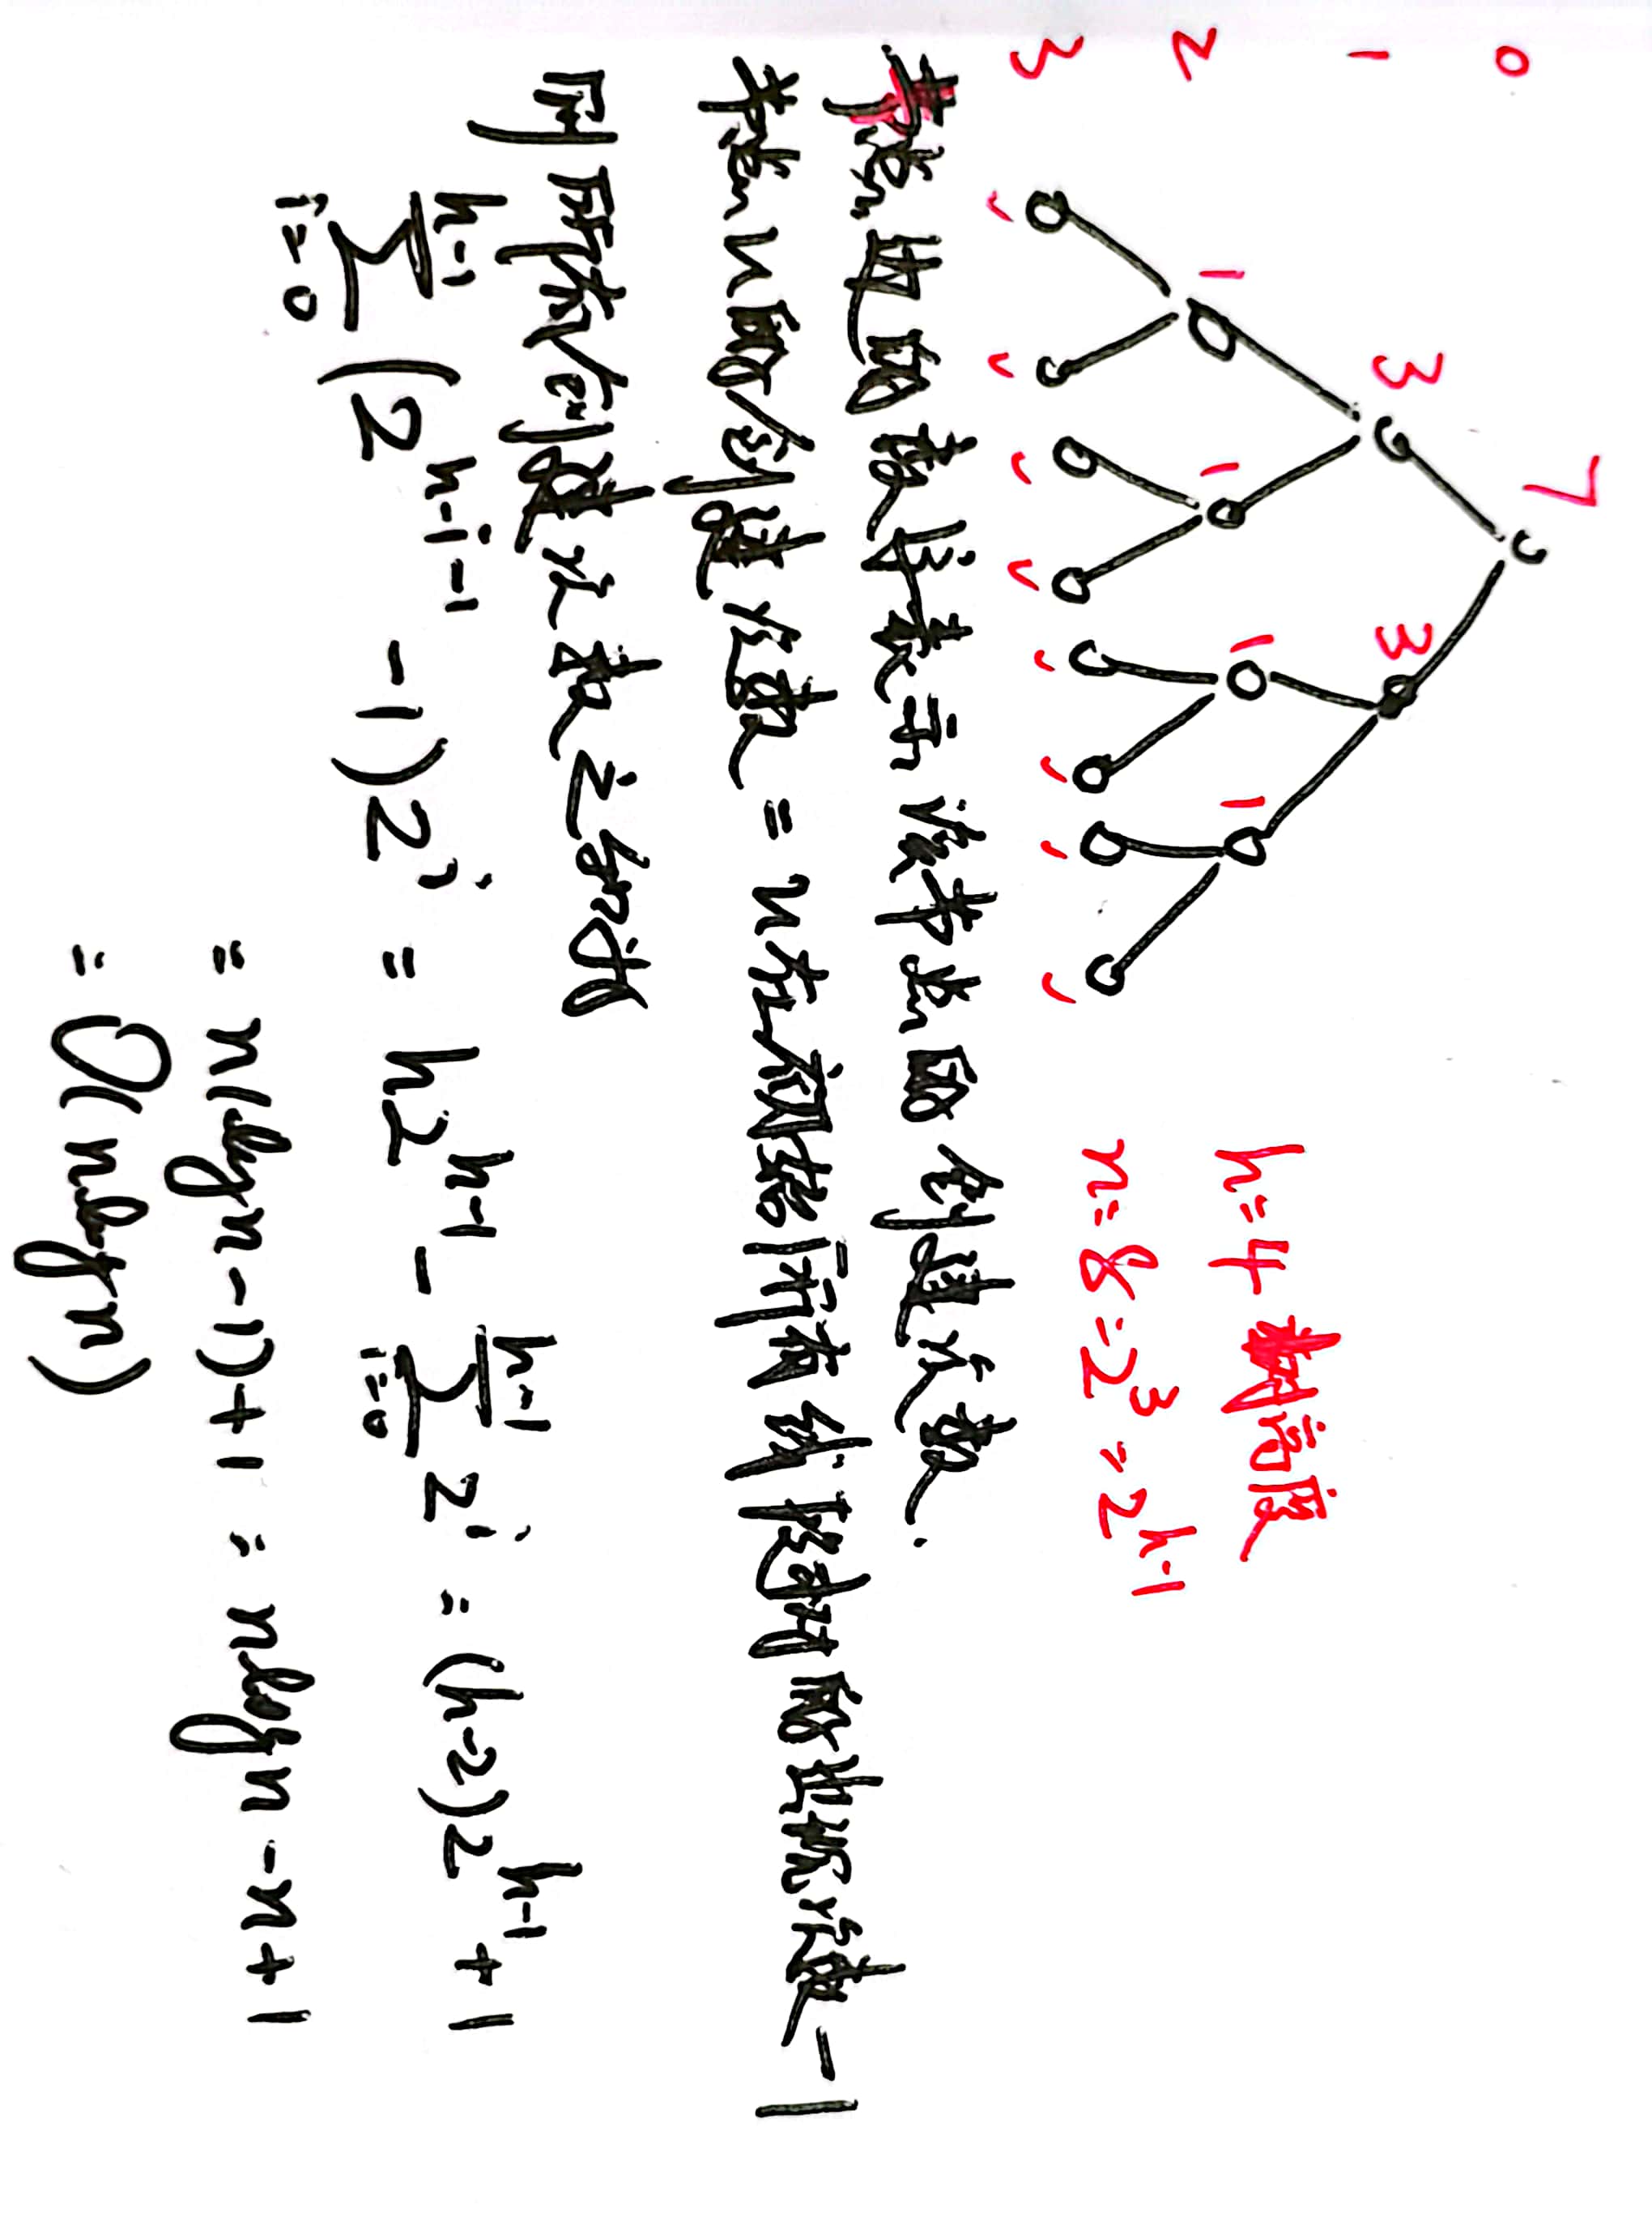 7
0
3 3
1
h=4 树高度
1 1 1 1
2
n=8=2^3=2^{h-1}
3
✓ ✓ ✓ ✓ ✓ ✓ ✓ ✓
节点边的数字表示该节点的创建次数.
节点u的创建次数=u在初始所有线段树的出现次数-1
则所有创建次数之和为
\sum_{i=0}^{h-1}(2^{h-i-1}-1)2^i = h2^{h-1}-\sum_{i=0}^{h-1}2^i=(h-2)2^{h-1}+1
=n(logn-1)+1=nlogn-n+1
=O(nlogn)